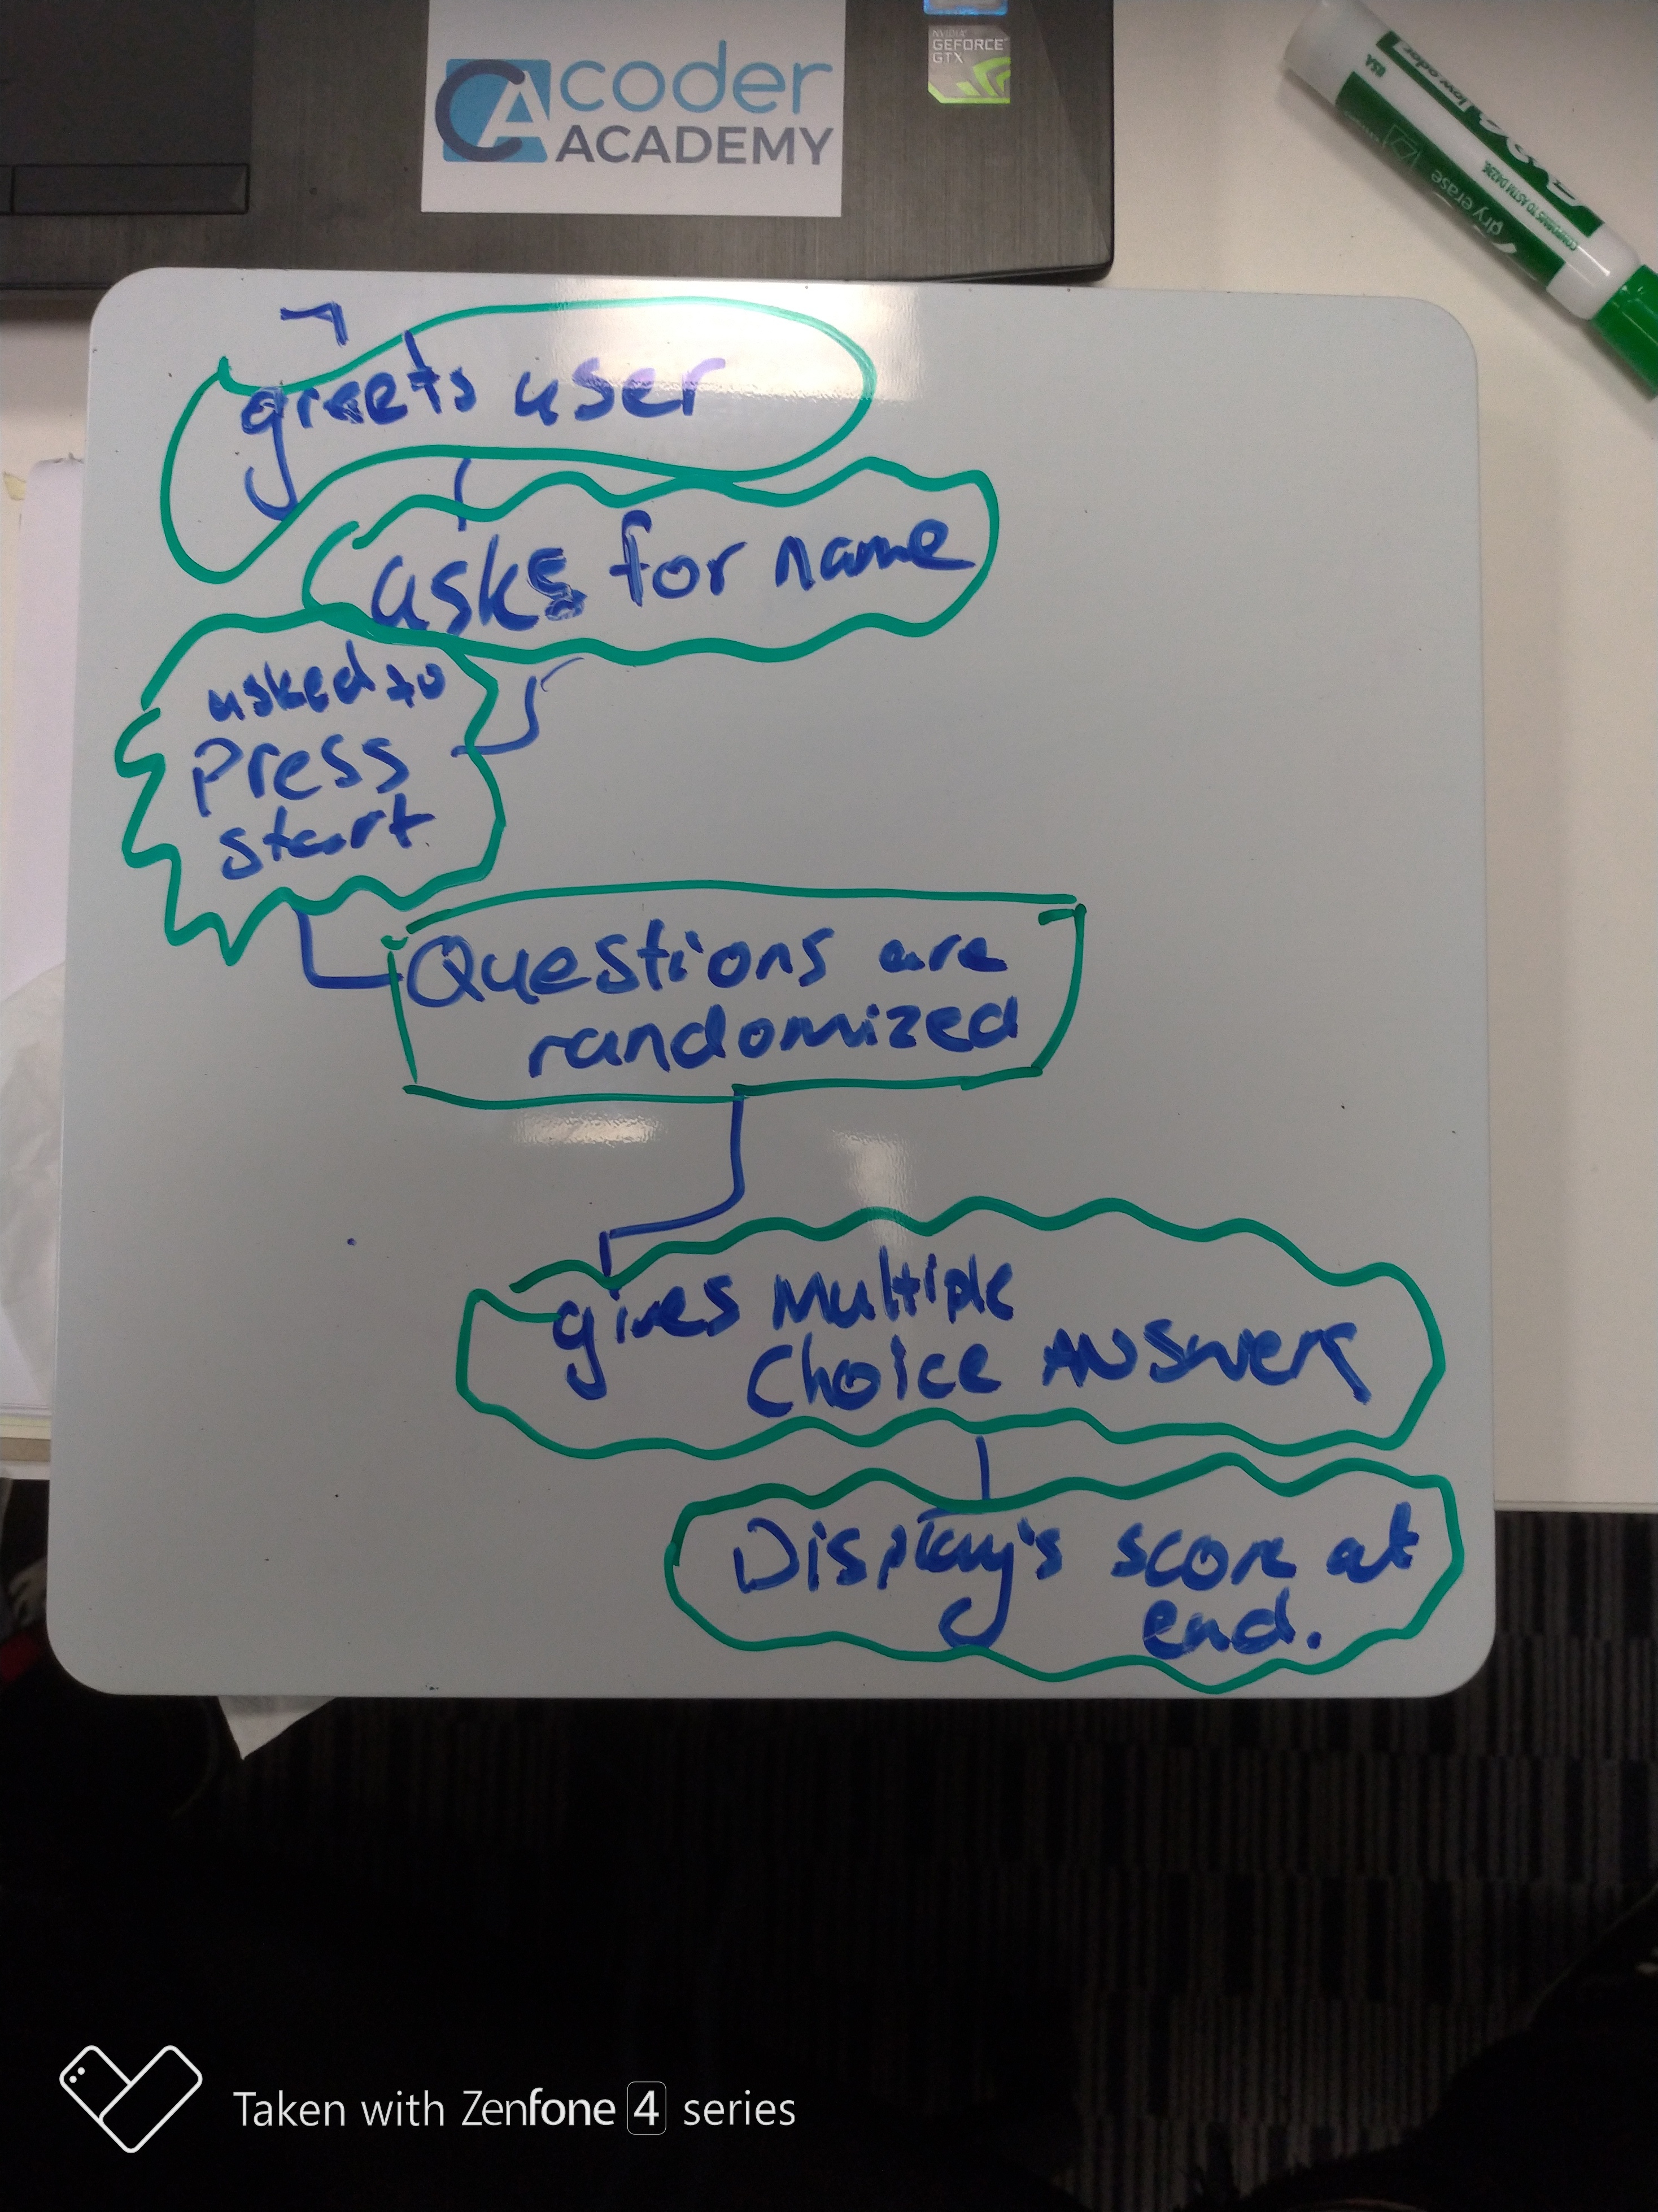 coder
ACADEMY
NVIDIA
GEFORCE
GTX
USA
low odor
dry erase
CONFORMS TO ASTM D4236
greets user
asks for name
asked to
press
start
Questions are
randomized
gives Multiple
Choice ANSwers
Display's score at
end.
Taken with Zenfone 4 series